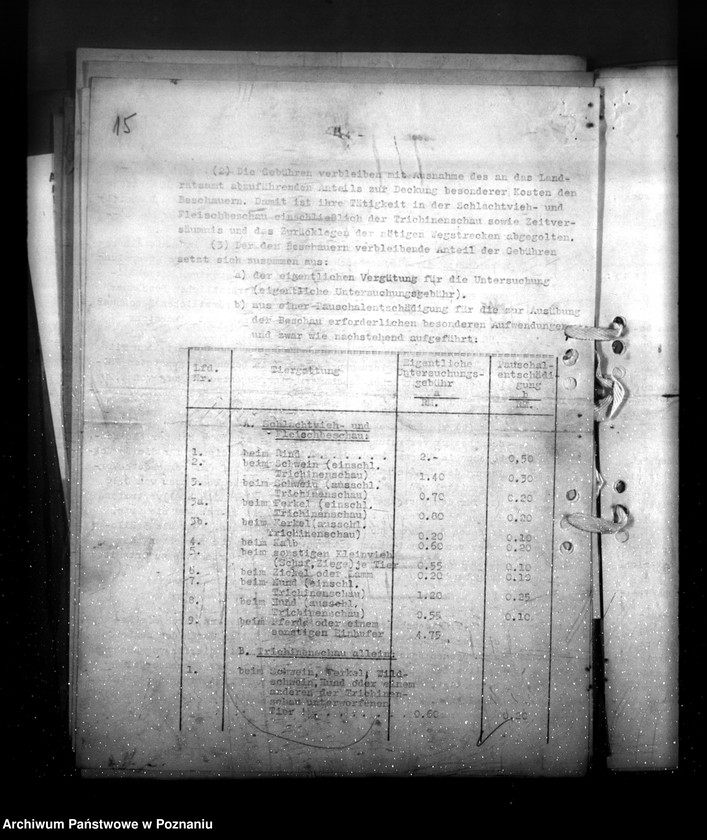 15
(2) Die Gebühren verbleiben mit Ausnahme des an das Land-
ratsamt abzuführenden Anteils zur Deckung besonderer Kosten den
Beschauern. Damit ist ihre Tätigkeit in der Schlachtvieh- und
Fleischbeschau einschließlich der Trichinenschau sowie Zeitver-
säumnis und das Zurücklegen der nötigen Wegstrecken abgegolten.
(3) Der den Beschauern verbleibende Anteil der Gebühren
setzt sich zusammen aus:
a) der eigentlichen Vergütung für die Untersuchung
(eigentliche Untersuchungsgebühr).
b) aus einer Pauschalentschädigung für die zur Ausübung
der Beschau erforderlichen besonderen Aufwendungen
und zwar wie nachstehend aufgeführt:
Lfd. Nr. Tiergattung Eigentliche Untersuchungs- gebühr a RM. Pauschal- entschädi gung b RM.
A. Schlachtvieh- und
Fleischbeschau:
1. beim Rind . . . . . . . . 2.- 0,50
2. beim Schwein (einschl.
Trichinenschau) 1.40 0.30
3. beim Schwein (ausschl.
Trichinenschau) 0.70 0.20
3a. beim Ferkel (einschl.
Trichinenschau) 0.80 0.20
3b. beim Ferkel(ausschl.
Trichinenschau) 0.20 0.10
4. beim Kalb 0.60 0.20
5. beim sonstigen Kleinvieh
(Schaf,Ziege)je Tier 0.55 0.10
6. beim Zickel oder Lamm 0.20 0.10
7. beim Hund (einschl.
Trichinenschau) 1.20 0.25
8. beim Hund (ausschl.
Trichinenschau) 0.55 0.10
9. beim Pferde oder einem
sonstigen Einhufer 4.75
B. Trichinenschau allein:
1. beim Schwein, Ferkel, Wild-
schwein, Hund oder einem
anderen der Trichinen-
schau unterworfenen
Tier . . . . . . . . 0.60
Archiwum Państwowe w Poznaniu